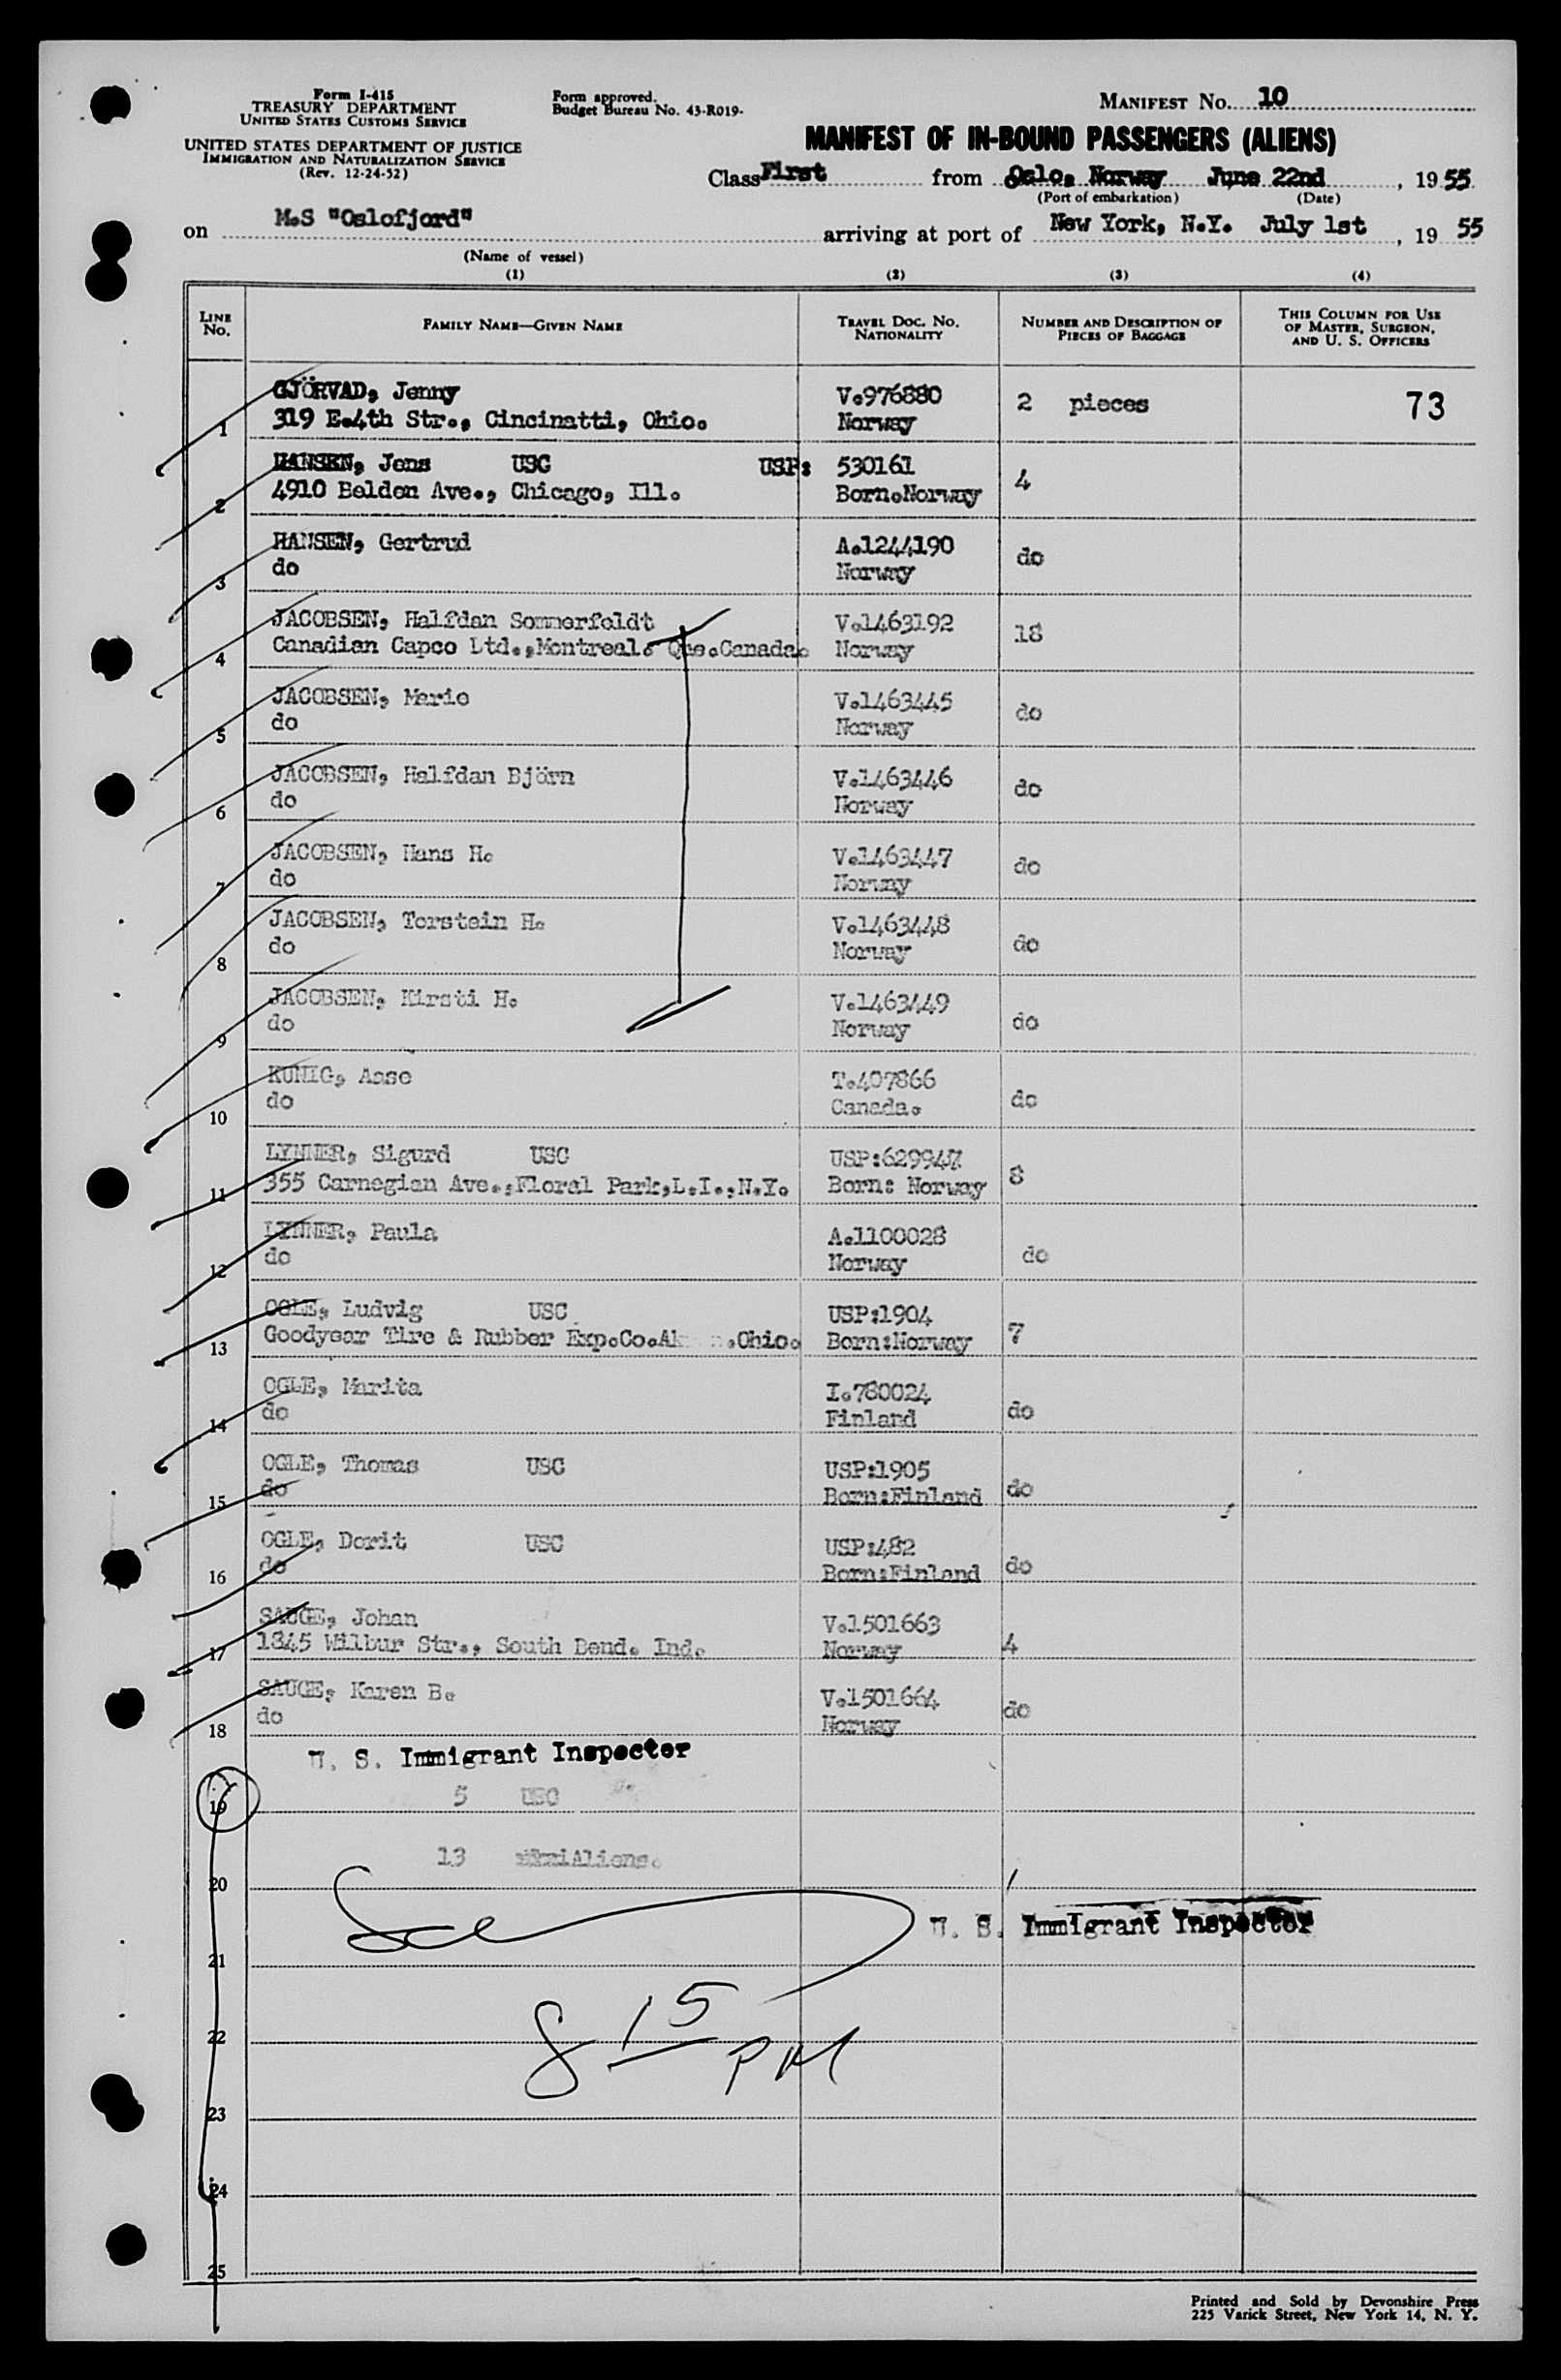 Form I-415
TREASURY DEPARTMENT
UNITED STATES CUSTOMS SERVICE
UNITED STATES DEPARTMENT OF JUSTICE
IMMIGRATION AND NATURALIZATION SERVICE
(Rev. 12-24-52)
Form approved.
Budget Bureau No. 43-R019-
MANIFEST NO. 10
MANIFEST OF IN-BOUND PASSENGERS (ALIENS)
Class First from Oslo, Norway June 22nd, 1955
(Port of embarkation) (Date)
on M.S "Oslofjord" arriving at port of New York, N.Y. July 1st, 1955
(Name of vessel)
(1) (2) (3) (4)
LINE NO. FAMILY NAME—GIVEN NAME TRAVEL DOC. NO. NATIONALITY NUMBER AND DESCRIPTION OF PIECES OF BAGGAGE THIS COLUMN FOR USE OF MASTER, SURGEON, AND U. S. OFFICERS
GJÖRVAD, Jenny V.976880 2 pieces 73
1 319 E.4th Str., Cincinatti, Ohio. Norway
HANSEN, Jens USC USP: 530161 4
2 4910 Belden Ave., Chicago, Ill. Born.Norway
HANSEN, Gertrud A.1244190 do
3 do Norway
JACOBSEN, Halfdan Sommerfeldt V.1463192 18
4 Canadian Capco Ltd.,Montreal. Que.Canada. Norway
JACOBSEN, Marie V.1463445 do
5 do Norway
JACOBSEN, Halfdan Björn V.1463446 do
6 do Norway
JACOBSEN, Hans H. V.1463447 do
7 do Norway
JACOBSEN, Torstein H. V.1463448 do
8 do Norway
JACOBSEN, Kirsti H. V.1463449 do
9 do Norway
KUNIG, Aase T.407866 do
10 do Canada.
LYNNER, Sigurd USC USP:629947 8
11 355 Carnegian Ave.,Floral Park,L.I.,N.Y. Born: Norway
LYNNER, Paula A.1100028 do
12 do Norway
OGLE, Ludvig USC USP:1904 7
13 Goodyear Tire & Rubber Exp.Co. Ohio. Born:Norway
OGLE, Marita I.780024 do
14 do Finland
OGLE, Thomas USC USP:1905 do
15 do Born:Finland
OGLE, Dorit USC USP:482 do
16 do Born:Finland
SAUGE, Johan V.1501663 4
17 1845 Wilbur Str., South Bend. Ind. Norway
SAUGE, Karen B. V.1501664 do
18 do Norway
U. S. Immigrant Inspector
19 5 USC
13 Aliens.
20
U. S. Immigrant Inspector
21
8 15 PM
22
23
24
25
Printed and Sold by Devonshire Press
225 Varick Street, New York 14, N. Y.